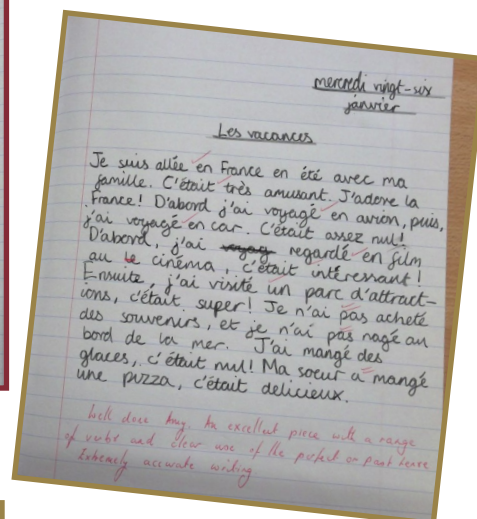 mercredi vingt-six
janvier
Les vacances
Je suis allée en France en été avec ma
famille. C'était très amusant. J'adore la
France! D'abord j'ai voyagé en avion, puis,
j'ai voyagé en car. C'était assez nul!
D'abord, j'ai regardé en film
au le cinéma, c'était intéressant!
Ensuite, j'ai visité un parc d'attract-
ions, c'était super! Je n'ai pas acheté
des souvenirs, et je n'ai pas nagé au
bord de la mer. J'ai mangé des
glaces, c'était nul! Ma soeur a mangé
une pizza, c'était delicieux.
Well done . An excellent piece with a range
of verbs and clear use of the perfect or past tense
Extremely accurate writing